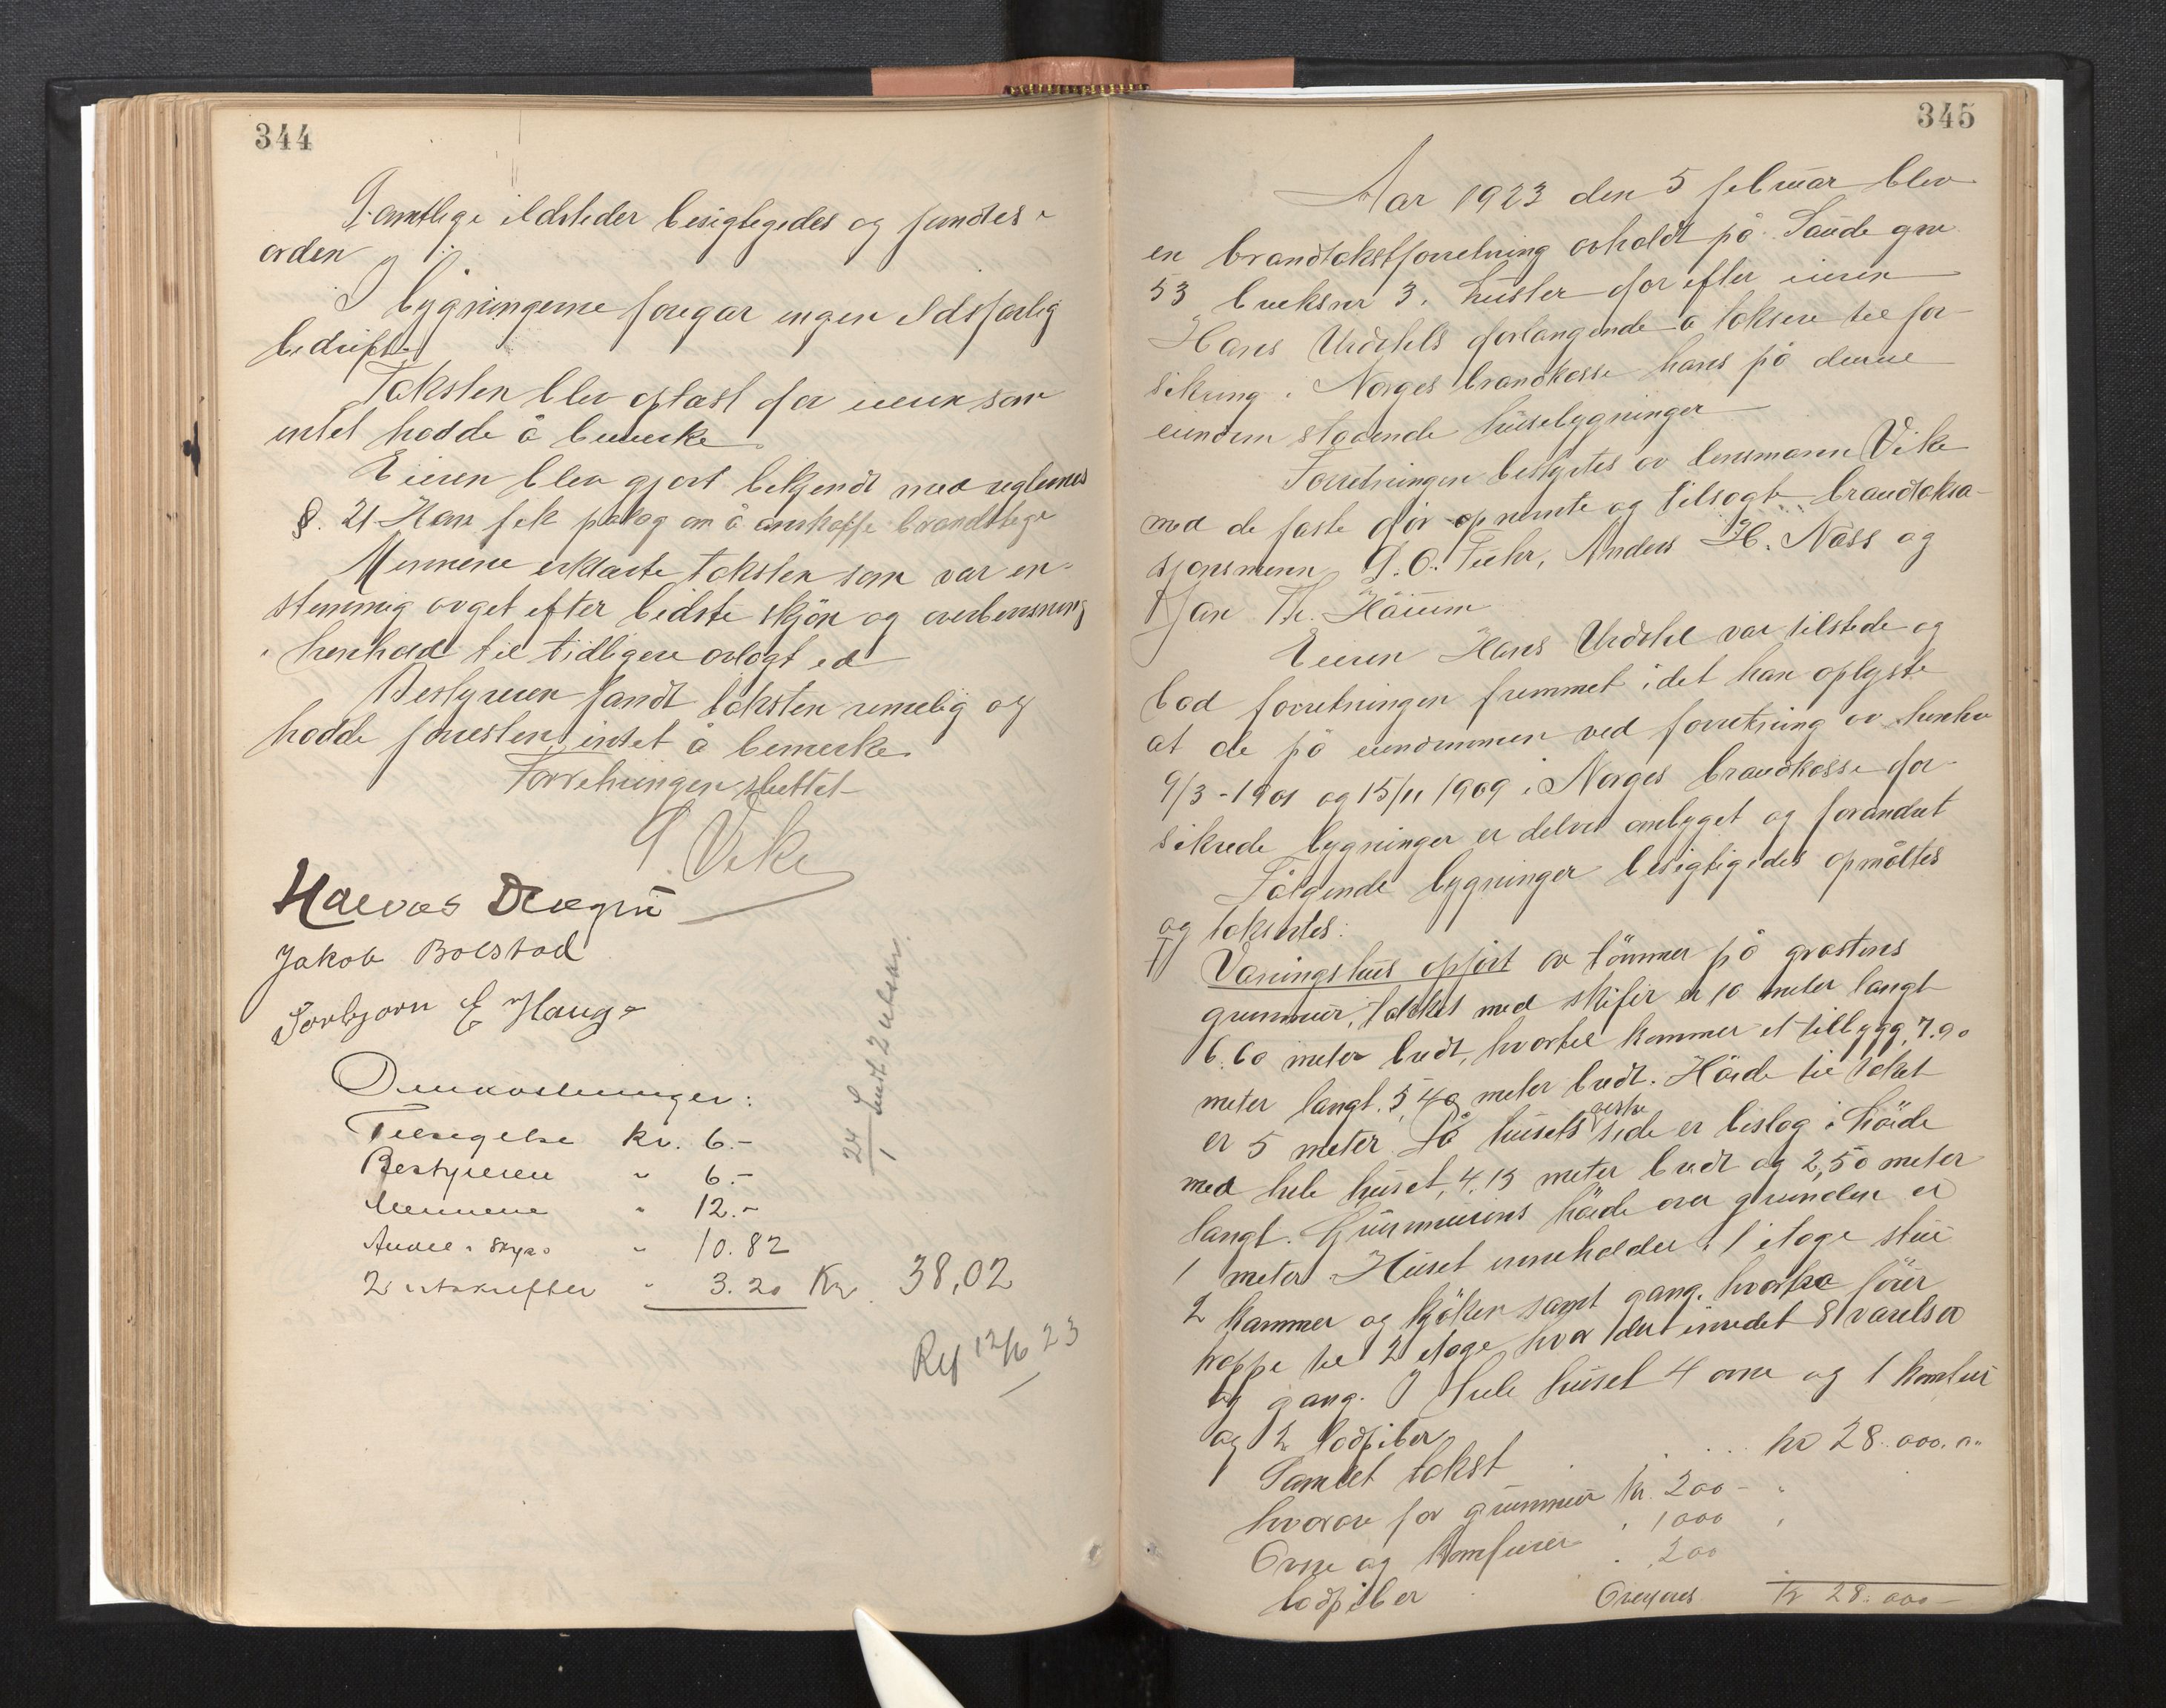 344
Samtlige ildsteder besigtegedes og fundtes i
orden
I bygningerne foregar ingen Ildsfarlig
bedrift.
Taksten blev oplæst for eieren som
intet hadde å bemerke.
Eieren blev gjort bekjendt med reglernes
§. 21. Han fik pålæg om å anskaffe brandstige
Mennene erklærte taksten som var en-
stemmig avget efter bedste skjön og overbevisning
i henhold til tidligere avlagt ed
Bestyreren fandt taksten rimelig og
hadde forresten intet å bemerke.
Forretningen sluttet
S. Vike
Jakob Bolstad
Torbjørn E Hauge
Omkostninger:
Tilsigelse Kr. 6.-
Bestyreren " 6.-
Mennene " 12.-
Andel i Skyds " 10.82
2 utskrifter " 3.20 Kr. 38,02
24/1 Sendt 2 utskr.
12/6 23
345
Aar 1923 den 5 februar blev
en brandtakstforretning avholdt på Saude gnr
53 bruksnr 3. Luster for efter eieren
Hans Urdahls forlangende å taksere til for-
sikring i Norges brandkasse hans på denne
eiendom staaende husebygninger
Forretningen bestyrtes av lensmann Vike
med de faste før opnevnte og tilsagte brandtaksa-
sjonsmenn S. O. Feehr, Anders H. Næss og
Jan Th. Häuum
Eieren Hans Urdahl var tilstede og
bad forretningen fremmet idet han oplyste
at de på eiendommen ved forretning av henhv
9/3-1901 og 15/11 1909 i Norges brandkasse for-
sikrede bygninger er delvis ombygget og forandret
Følgende bygninger besigtigedes opmåltes
og taksertes:
Vaaningshus opført av tömmer på gråstens
grunmur, takket med skifer er 10 meter langt
6.60 meter bredt, hvortil kommer et tilbygg, 7.90
meter langt. 5,40 meter bredt. Höide til taket
er 5 meter På husets vestre side er bislag i höide
med hele huset, 4.15 meter bredt og 2,50 meter
langt. Grunmurens höide over grunden er
1 meter. Huset inneholder i 1 etage stue
2 kammer og kjöken samt gang. hvorfra förer
trappe til 2 etage hvor der er innredet 8 værelser
og gang. I hele huset 4 ovne og 1 komfur
og 2 lodpiber
Samlet takst kr 28.000.00
hvorav for grunmur kr. 200 -
Ovne og komfurer " 1000
lodpiber " 200
Overføres kr 28.000-